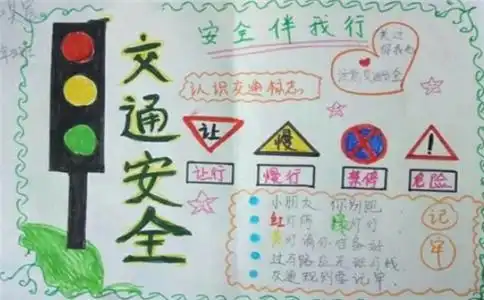 安全伴我行
交通安全
认识交通标志
注意交通安全
让
慢
让行
慢行
禁停
危险
小朋友 你别跑
红灯停 绿灯行
黄灯请你准备好
交通规则要记牢
记
牢